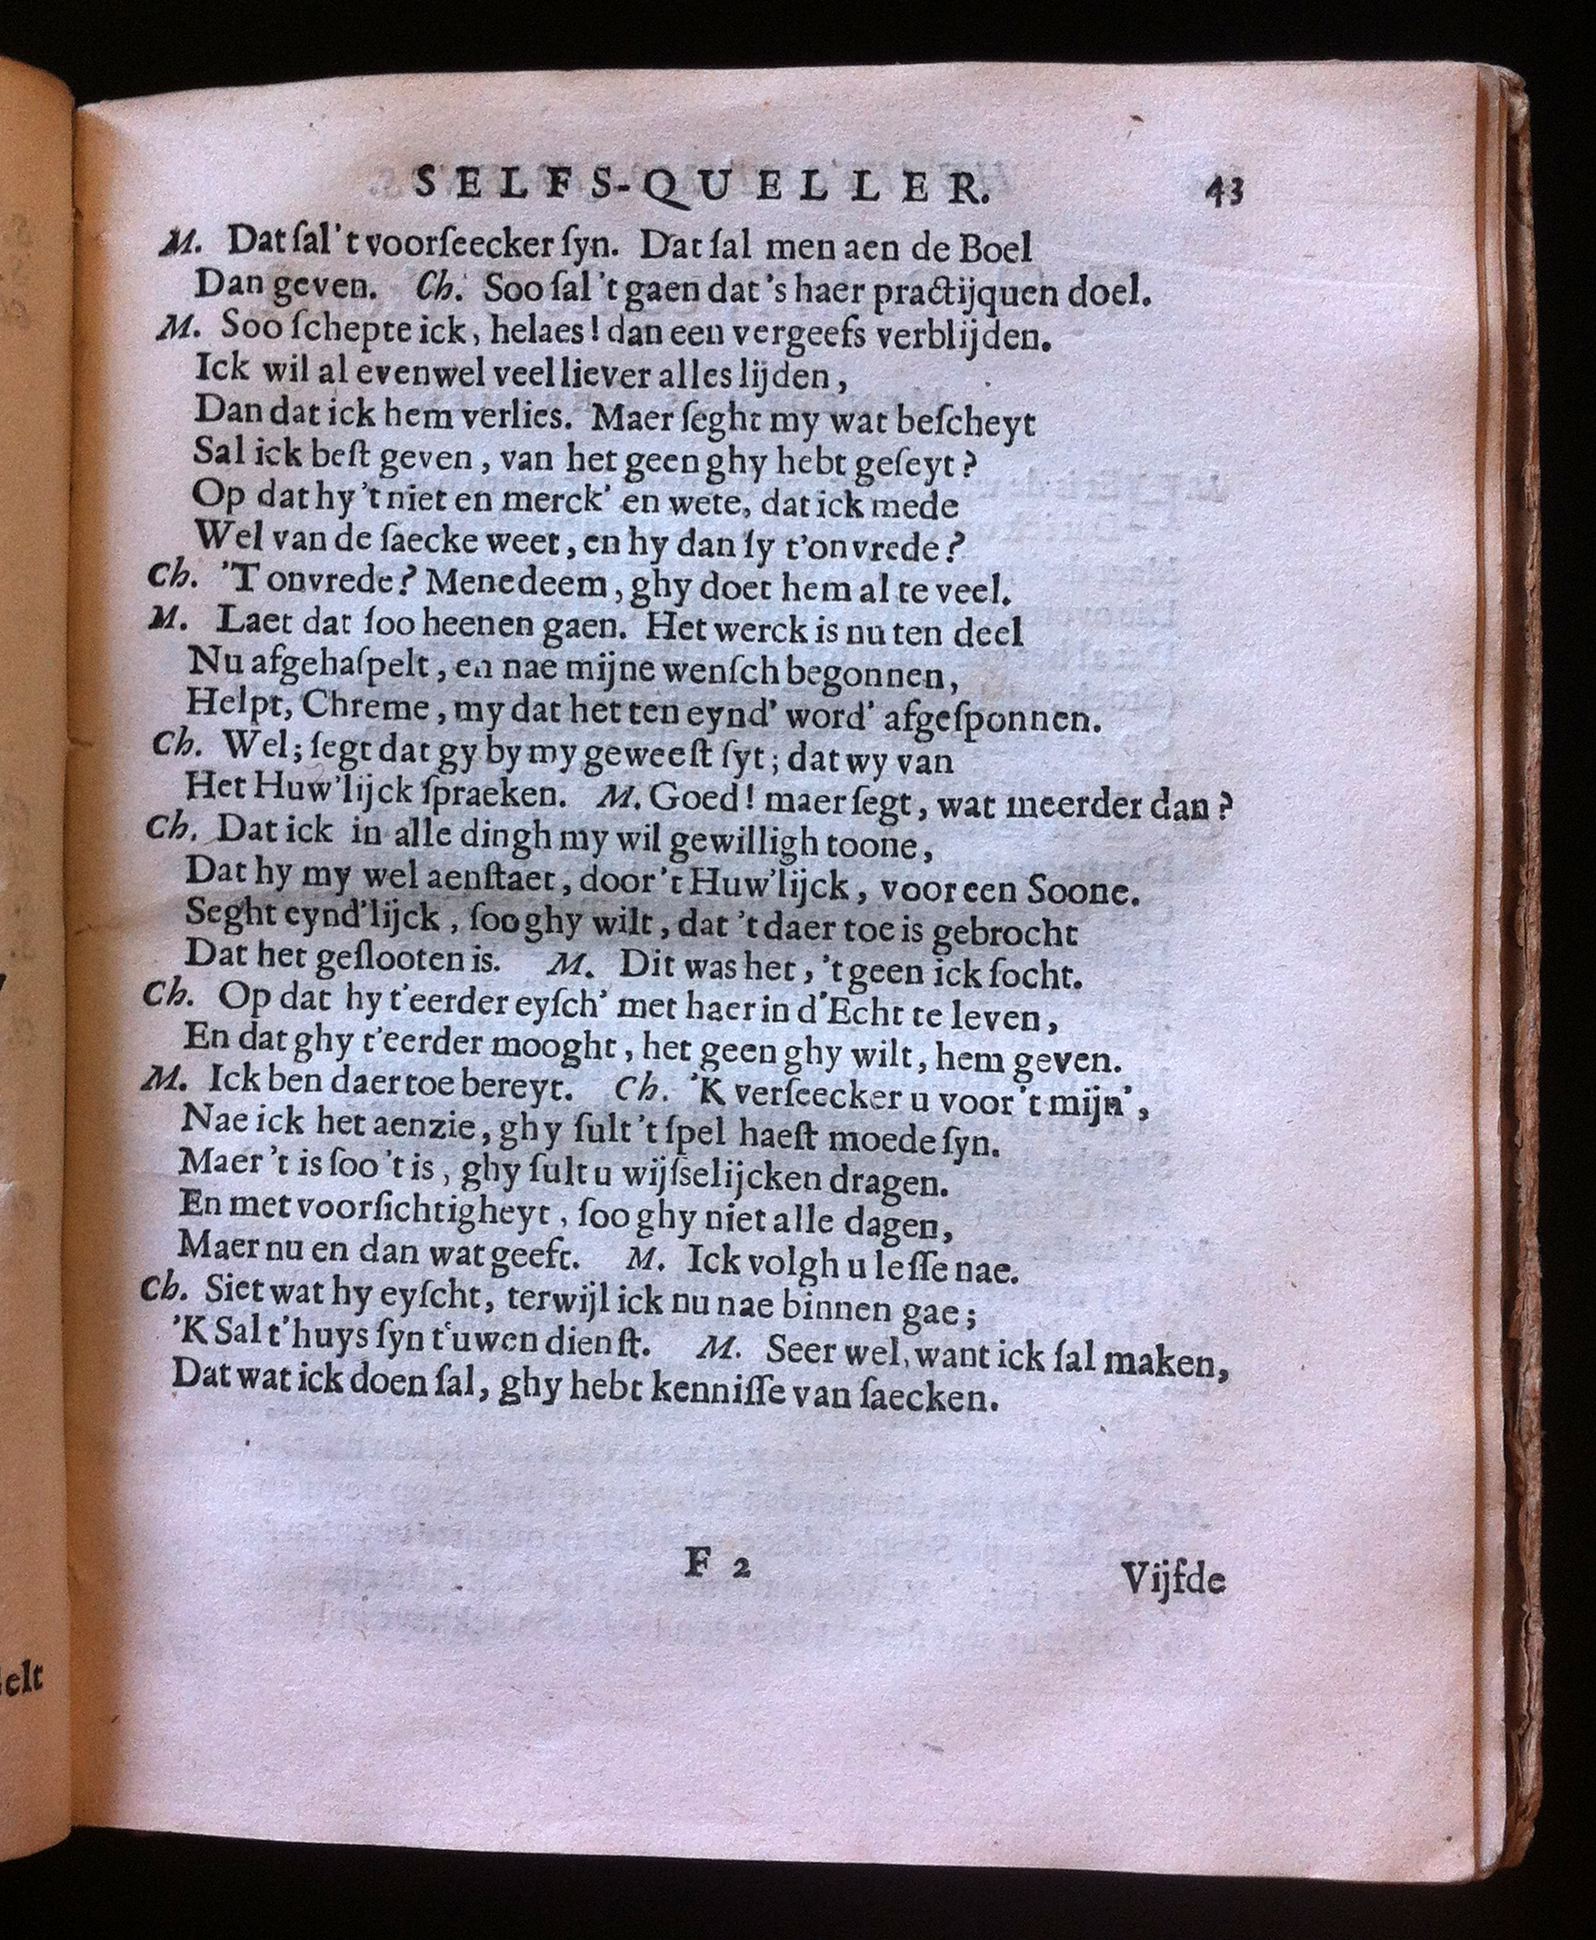 SELFS-QUELLER. 43
M. Dat ſal 't voorſeecker ſyn. Dat ſal men aen de Boel
Dan geven. Ch. Soo ſal 't gaen dat 's haer practijquen doel.
M. Soo ſchepte ick, helaes! dan een vergeefs verblijden.
Ick wil al evenwel veel liever alles lijden,
Dan dat ick hem verlies. Maer ſeght my wat beſcheyt
Sal ick beſt geven, van het geen ghy hebt geſeyt?
Op dat hy 't niet en merck' en wete, dat ick mede
Wel van de ſaecke weet, en hy dan ſy t'onvrede?
Ch. 'T onvrede? Menedeem, ghy doet hem al te veel.
M. Laet dat ſoo heenen gaen. Het werck is nu ten deel
Nu afgehaſpelt, en nae mijne wenſch begonnen,
Helpt, Chreme, my dat het ten eynd' word' afgeſponnen.
Ch. Wel; ſegt dat gy by my geweeſt ſyt; dat wy van
Het Huw'lijck ſpraeken. M. Goed! maer ſegt, wat meerder dan?
Ch. Dat ick in alle dingh my wil gewilligh toone,
Dat hy my wel aenſtaet, door 't Huw'lijck, voor een Soone.
Seght eynd'lijck, ſoo ghy wilt, dat 't daer toe is gebrocht
Dat het geſlooten is. M. Dit was het, 't geen ick ſocht.
Ch. Op dat hy t'eerder eyſch' met haer in d'Echt te leven,
En dat ghy t'eerder mooght, het geen ghy wilt, hem geven.
M. Ick ben daer toe bereyt. Ch. 'K verſeecker u voor 't mijn',
Nae ick het aenzie, ghy ſult 't ſpel haeſt moede ſyn.
Maer 't is ſoo 't is, ghy ſult u wijſselijcken dragen.
En met voorſichtigheyt, ſoo ghy niet alle dagen,
Maer nu en dan wat geeft. M. Ick volgh u leſſe nae.
Ch. Siet wat hy eyſcht, terwijl ick nu nae binnen gae;
'K Sal t'huys ſyn t'uwen dienſt. M. Seer wel, want ick ſal maken,
Dat wat ick doen ſal, ghy hebt kenniſſe van ſaecken.
F 2 Vijfde
elt